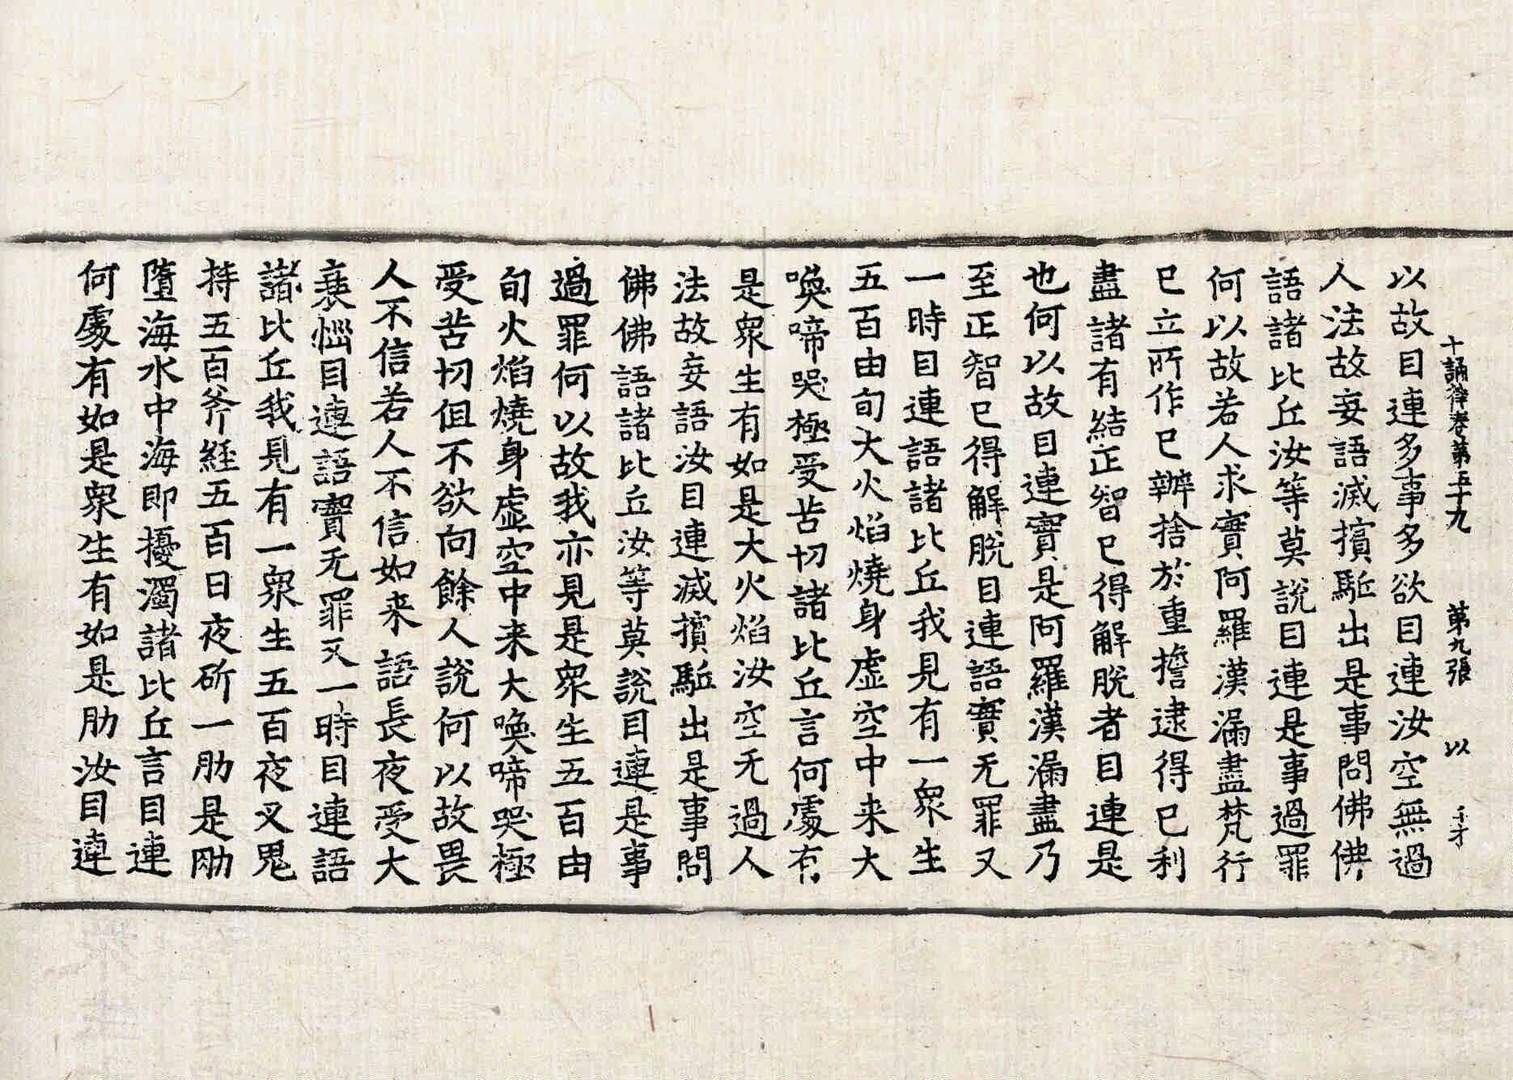 十誦律卷第五十九 第九張 以
以故目連多事多欲目連汝空無過
人法故妄語滅擯駈出是事問佛佛
語諸比丘汝等莫說目連是事過罪
何以故若人求實阿羅漢漏盡梵行
已立所作已辦捨於重擔逮得已利
盡諸有結正智已得解脫者目連是
也何以故目連實是阿羅漢漏盡乃
至正智已得解脫目連語實无罪又
一時目連語諸比丘我見有一衆生
五百由旬大火焰燒身虛空中来大
喚啼哭極受苦切諸比丘言何處有
是衆生有如是大火焰汝空无過人
法故妄語汝目連滅擯駈出是事問
佛佛語諸比丘汝等莫說目連是事
過罪何以故我亦見是衆生五百由
旬火焰燒身虛空中来大喚啼哭極
受苦切但不欲向餘人說何以故畏
人不信若人不信如来語長夜受大
衰惱目連語實无罪又一時目連語
諸比丘我見有一衆生五百夜叉鬼
持五百斧經五百日夜斫一肋是肋
墮海水中海即擾濁諸比丘言目連
何處有如是衆生有如是肋汝目連